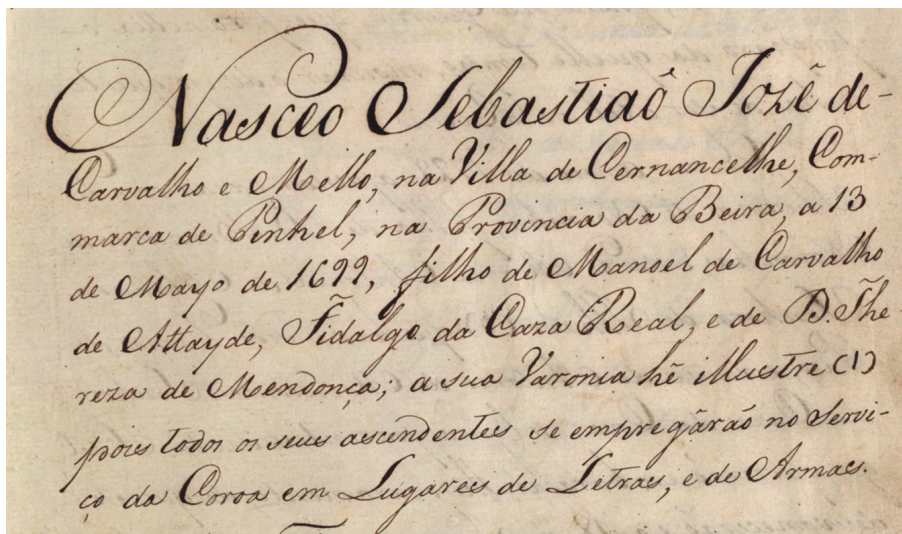 Nasceo Sebastiaõ Jozê de-
Carvalho e Mello, na Villa de Cernancelhe, Com-
marca de Pinhel, na Provincia da Beira, a 13
de Mayo de 1699, filho de Manoel de Carvalho
de Attayde, Fidalgo da Caza Real, e de D. The-
reza de Mendonça; a sua Varonia hê illustre (1)
pois todos os seus ascendentes se empregárão no servi-
ço da Coroa em Lugares de Letras, e de Armas.